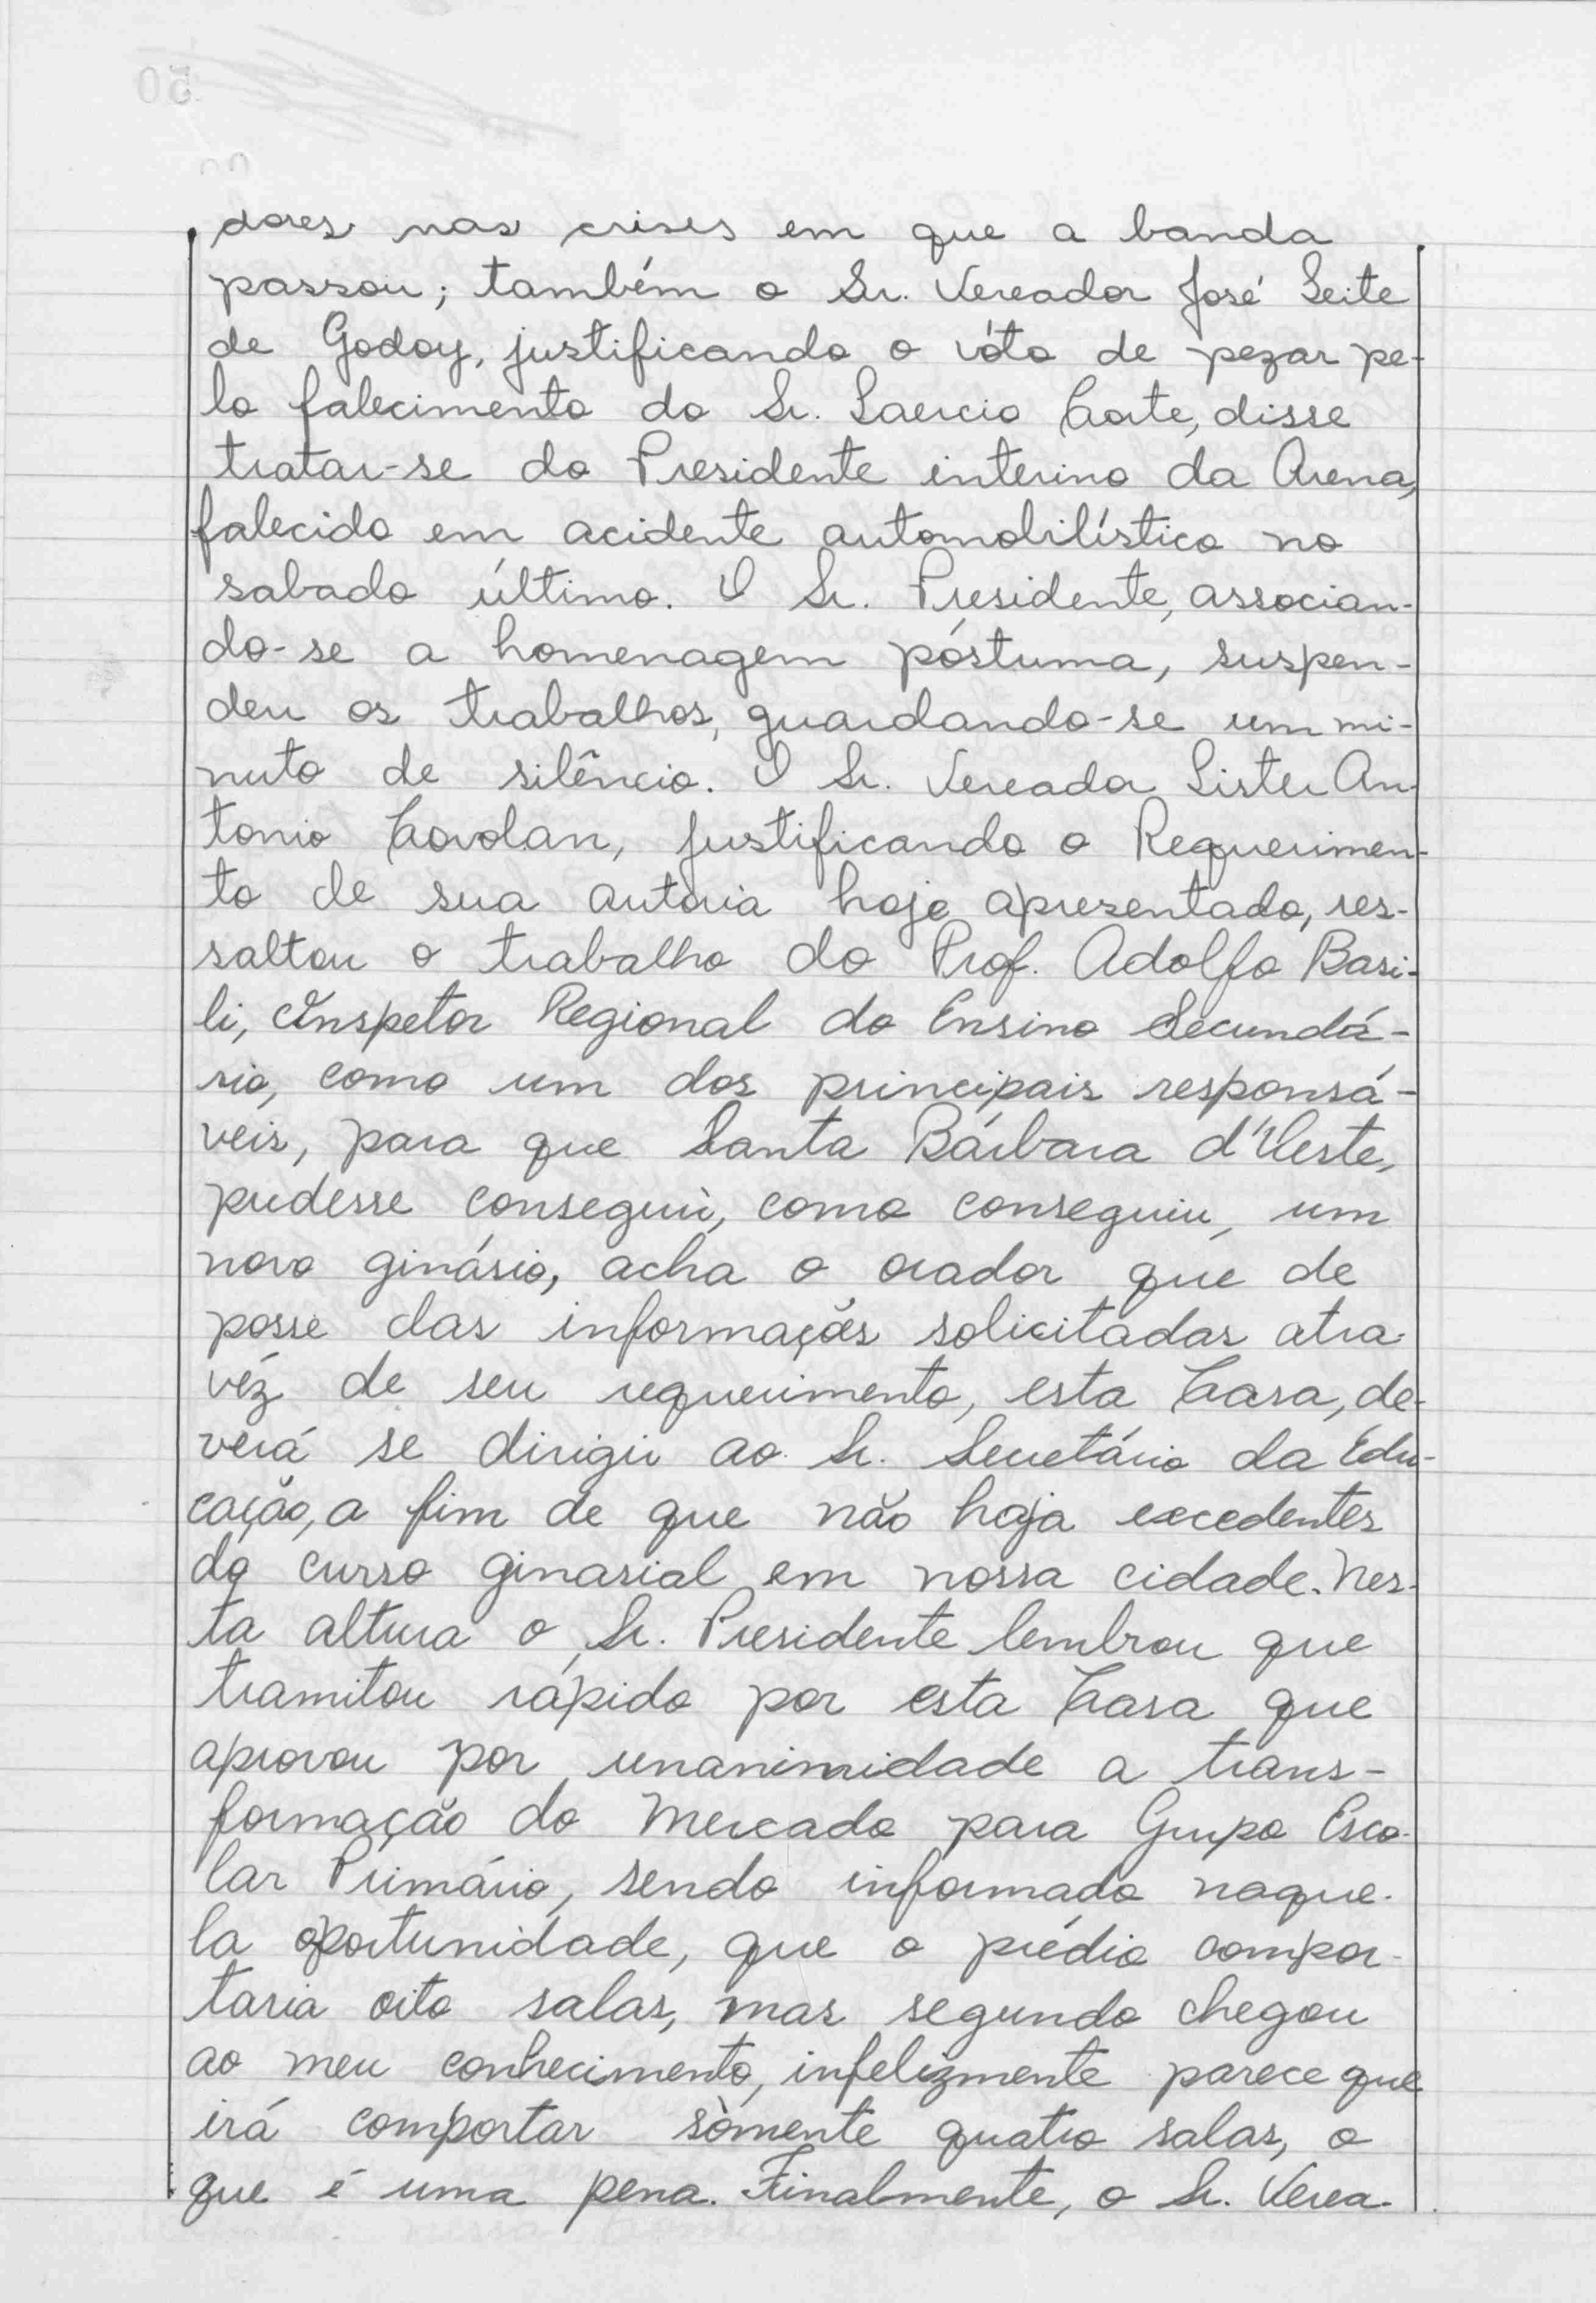 dores nas crises em que a banda
passou; também o Sr. Vereador José Leite
de Godoy, justificando o vóto de pezar pe-
lo falecimento do Sr. Laercio Corte, disse
tratar-se do Presidente interino da Arena,
falecido em acidente automobilístico no
sabado último. O Sr. Presidente, associan-
do-se a homenagem póstuma, suspen-
deu os trabalhos, guardando-se um mi-
nuto de silêncio. O Sr. Vereador Lister An-
tonio Covolan, justificando o Requerimen-
to de sua autoria hoje apresentado, res-
saltou o trabalho do Prof. Adolfo Basi-
li, Inspetor Regional do Ensino Secundá-
rio, como um dos principais responsá-
veis, para que Santa Bárbara d'Oeste,
pudesse conseguir, como conseguiu, um
novo ginásio, acha o orador que de
posse das informações solicitadas atra-
véz de seu requerimento, esta Casa, de-
verá se dirigir ao Sr. Secretário da Edu-
cação, a fim de que não haja excedentes
do curso ginasial em nossa cidade. Nes-
ta altura o Sr. Presidente lembrou que
tramitou rápido por esta Casa que
aprovou por unanimidade a trans-
formação do Mercado para Grupo Esco-
lar Primário, sendo informado naque-
la oportunidade, que o prédio compor-
taria oito salas, mas segundo chegou
ao meu conhecimento, infelizmente parece que
irá comportar sòmente quatro salas, o
que é uma pena. Finalmente, o Sr. Verea-